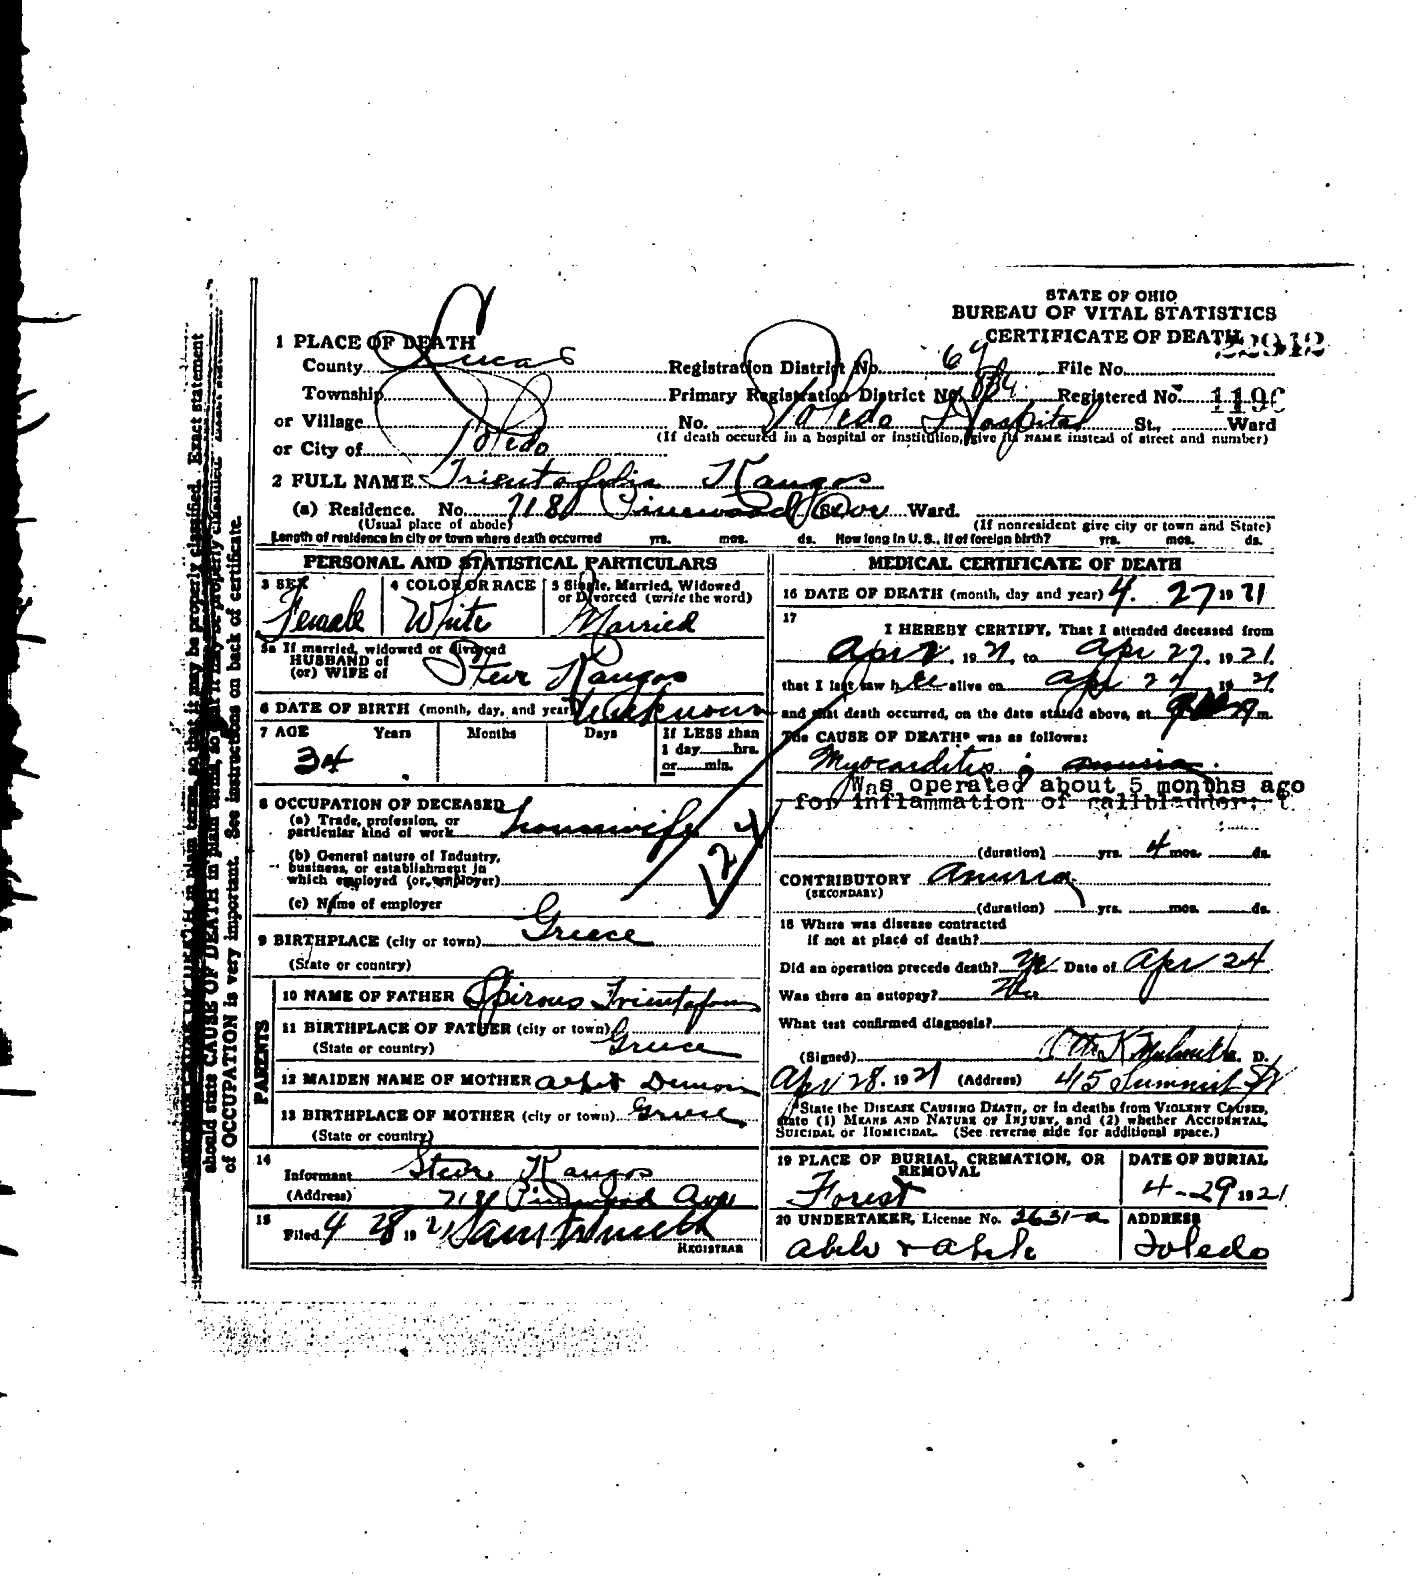 STATE OF OHIO
BUREAU OF VITAL STATISTICS
CERTIFICATE OF DEATH
22912
1 PLACE OF DEATH
County Lucas Registration District No. File No.
Township Primary Registration District No. Registered No. 1196
or Village No. Toledo Hospital St., Ward
(If death occured in a hospital or institution, give its NAME instead of street and number)
or City of Toledo
2 FULL NAME Trientafelia Kangos
(a) Residence. No. 718 Pinewood Ave St. Ward.
(Usual place of abode) (If nonresident give city or town and State)
Length of residence in city or town where death occurred yrs. mos. ds. How long in U. S., if of foreign birth? yrs. mos. ds.
PERSONAL AND STATISTICAL PARTICULARS
3 SEX 4 COLOR OR RACE 5 Single, Married, Widowed
or Divorced (write the word)
Female White Married
5a If married, widowed or divorced
HUSBAND of
(or) WIFE of Steve Kangos
6 DATE OF BIRTH (month, day, and year) Unknown
7 AGE Years Months Days If LESS than
1 day hrs.
or min.
34
8 OCCUPATION OF DECEASED
(a) Trade, profession, or
particular kind of work housewife
(b) General nature of Industry,
business, or establishment in
which employed (or employer)
(c) Name of employer
124
9 BIRTHPLACE (city or town) Greece
(State or country)
PARENTS
10 NAME OF FATHER Spirous
11 BIRTHPLACE OF FATHER (city or town)
(State or country) Greece
12 MAIDEN NAME OF MOTHER
13 BIRTHPLACE OF MOTHER (city or town) Greece
(State or country)
14
Informant Steve Kangos
(Address) 718 Pinewood Ave
15
Filed 4 28 1921
REGISTRAR
MEDICAL CERTIFICATE OF DEATH
16 DATE OF DEATH (month, day and year) 4. 27 1921
17
I HEREBY CERTIFY, That I attended deceased from
Apr 2, 1921, to Apr 27, 1921.
that I last saw her alive on Apr 27 1921
and that death occurred, on the date stated above, at m.
The CAUSE OF DEATH* was as follows:
Myocarditis; anuria.
Was operated about 5 months ago
for inflammation of gallbladder:
(duration) yrs. 4 mos. ds.
CONTRIBUTORY Anuria
(SECONDARY)
(duration) yrs. mos. ds.
18 Where was disease contracted
if not at place of death?
Did an operation precede death? Yes Date of Apr 24
Was there an autopsy? No
What test confirmed diagnosis?
(Signed) M. D.
Apr 28, 1921 (Address) 415 Summit St
*State the DISEASE CAUSING DEATH, or in deaths from VIOLENT CAUSES,
state (1) MEANS AND NATURE OF INJURY, and (2) whether ACCIDENTAL,
SUICIDAL or HOMICIDAL. (See reverse side for additional space.)
19 PLACE OF BURIAL, CREMATION, OR
REMOVAL
Forest
DATE OF BURIAL
4-29 1921
20 UNDERTAKER, License No. 2631-a
Abele & Abele
ADDRESS
Toledo
should state CAUSE OF DEATH in plain terms, so that it may be properly classified. Exact statement
of OCCUPATION is very important. See instructions on back of certificate.